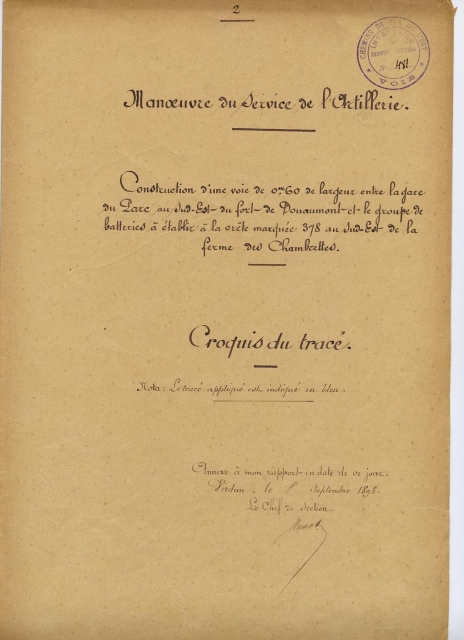 2
CHEMINS DE FER DE L'EST
VOIE
Manœuvre du Service de l'Artillerie.
Construction d'une voie de 0m60 de largeur entre la gare
du Parc au Sud-Est du fort de Douaumont et le groupe de
batteries à établir à la crête marquée 378 au Sud-Est de la
ferme des Chambrettes.
Croquis du tracé.
Nota: Le tracé appliqué est indiqué en bleu.
Annexe à mon rapport en date de ce jour.
Verdun, le 8 Septembre 1898.
Le Chef de Section.